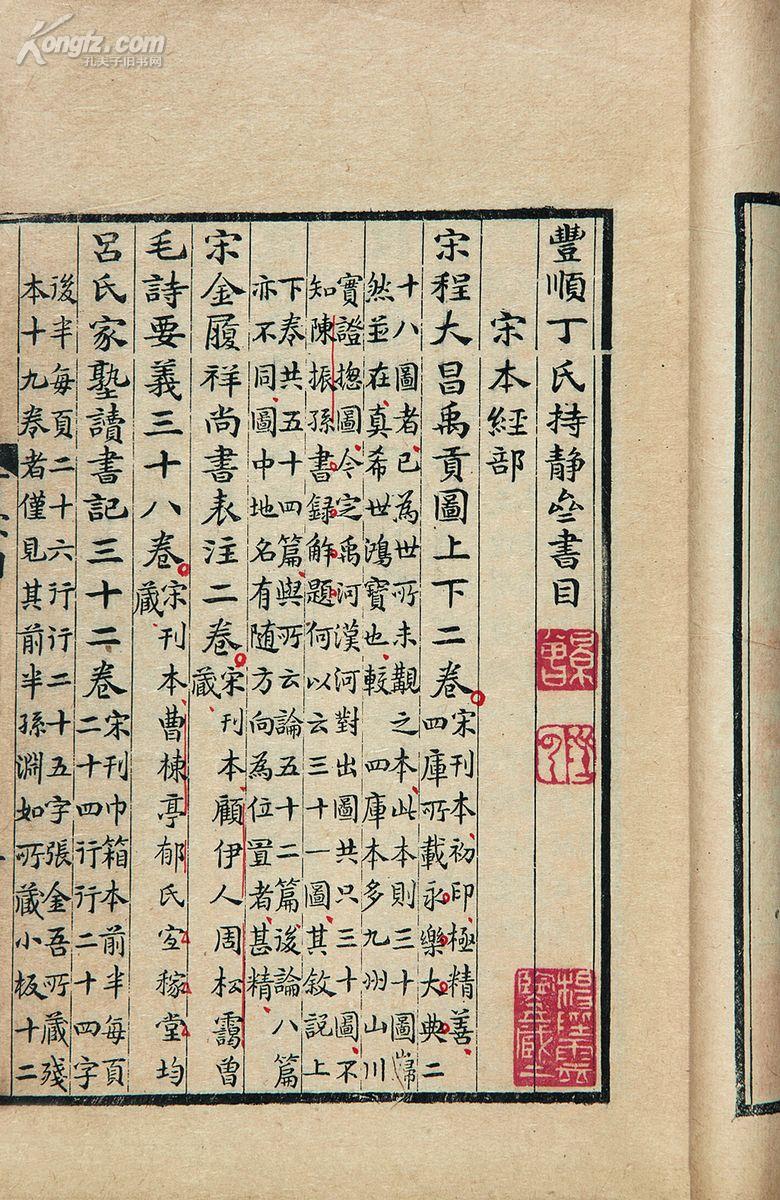 Kongfz.com
孔夫子旧书网
豐順丁氏持静亝書目
宋本經部
宋程大昌禹貢圖上下二卷
宋刊本初印極精善
四庫所載永樂大典二
十八圖者已為世所未觀之本此本則三十圖歸
然並在真希世鴻寶也較四庫本多九州山川
實證摠圖今定禹河漢河對出圖共只三十圖不
知陳振孫書録解題何以云三十一圖其敘說上
下卷共五十四篇與所云論五十二篇後論八篇
亦不同圖中地名有随方向為位置者甚精
宋金履祥尚書表注二卷
宋刊本顧伊人周松靄曾
藏
毛詩要義三十八卷
宋刊本曹楝亭郁氏宜稼堂均
藏
呂氏家塾讀書記三十二卷
宋刊巾箱本前半每頁
二十四行行二十四字
後半每頁二十六行行二十五字張金吾所藏殘
本十九卷者僅見其前半孫淵如所藏小板十二